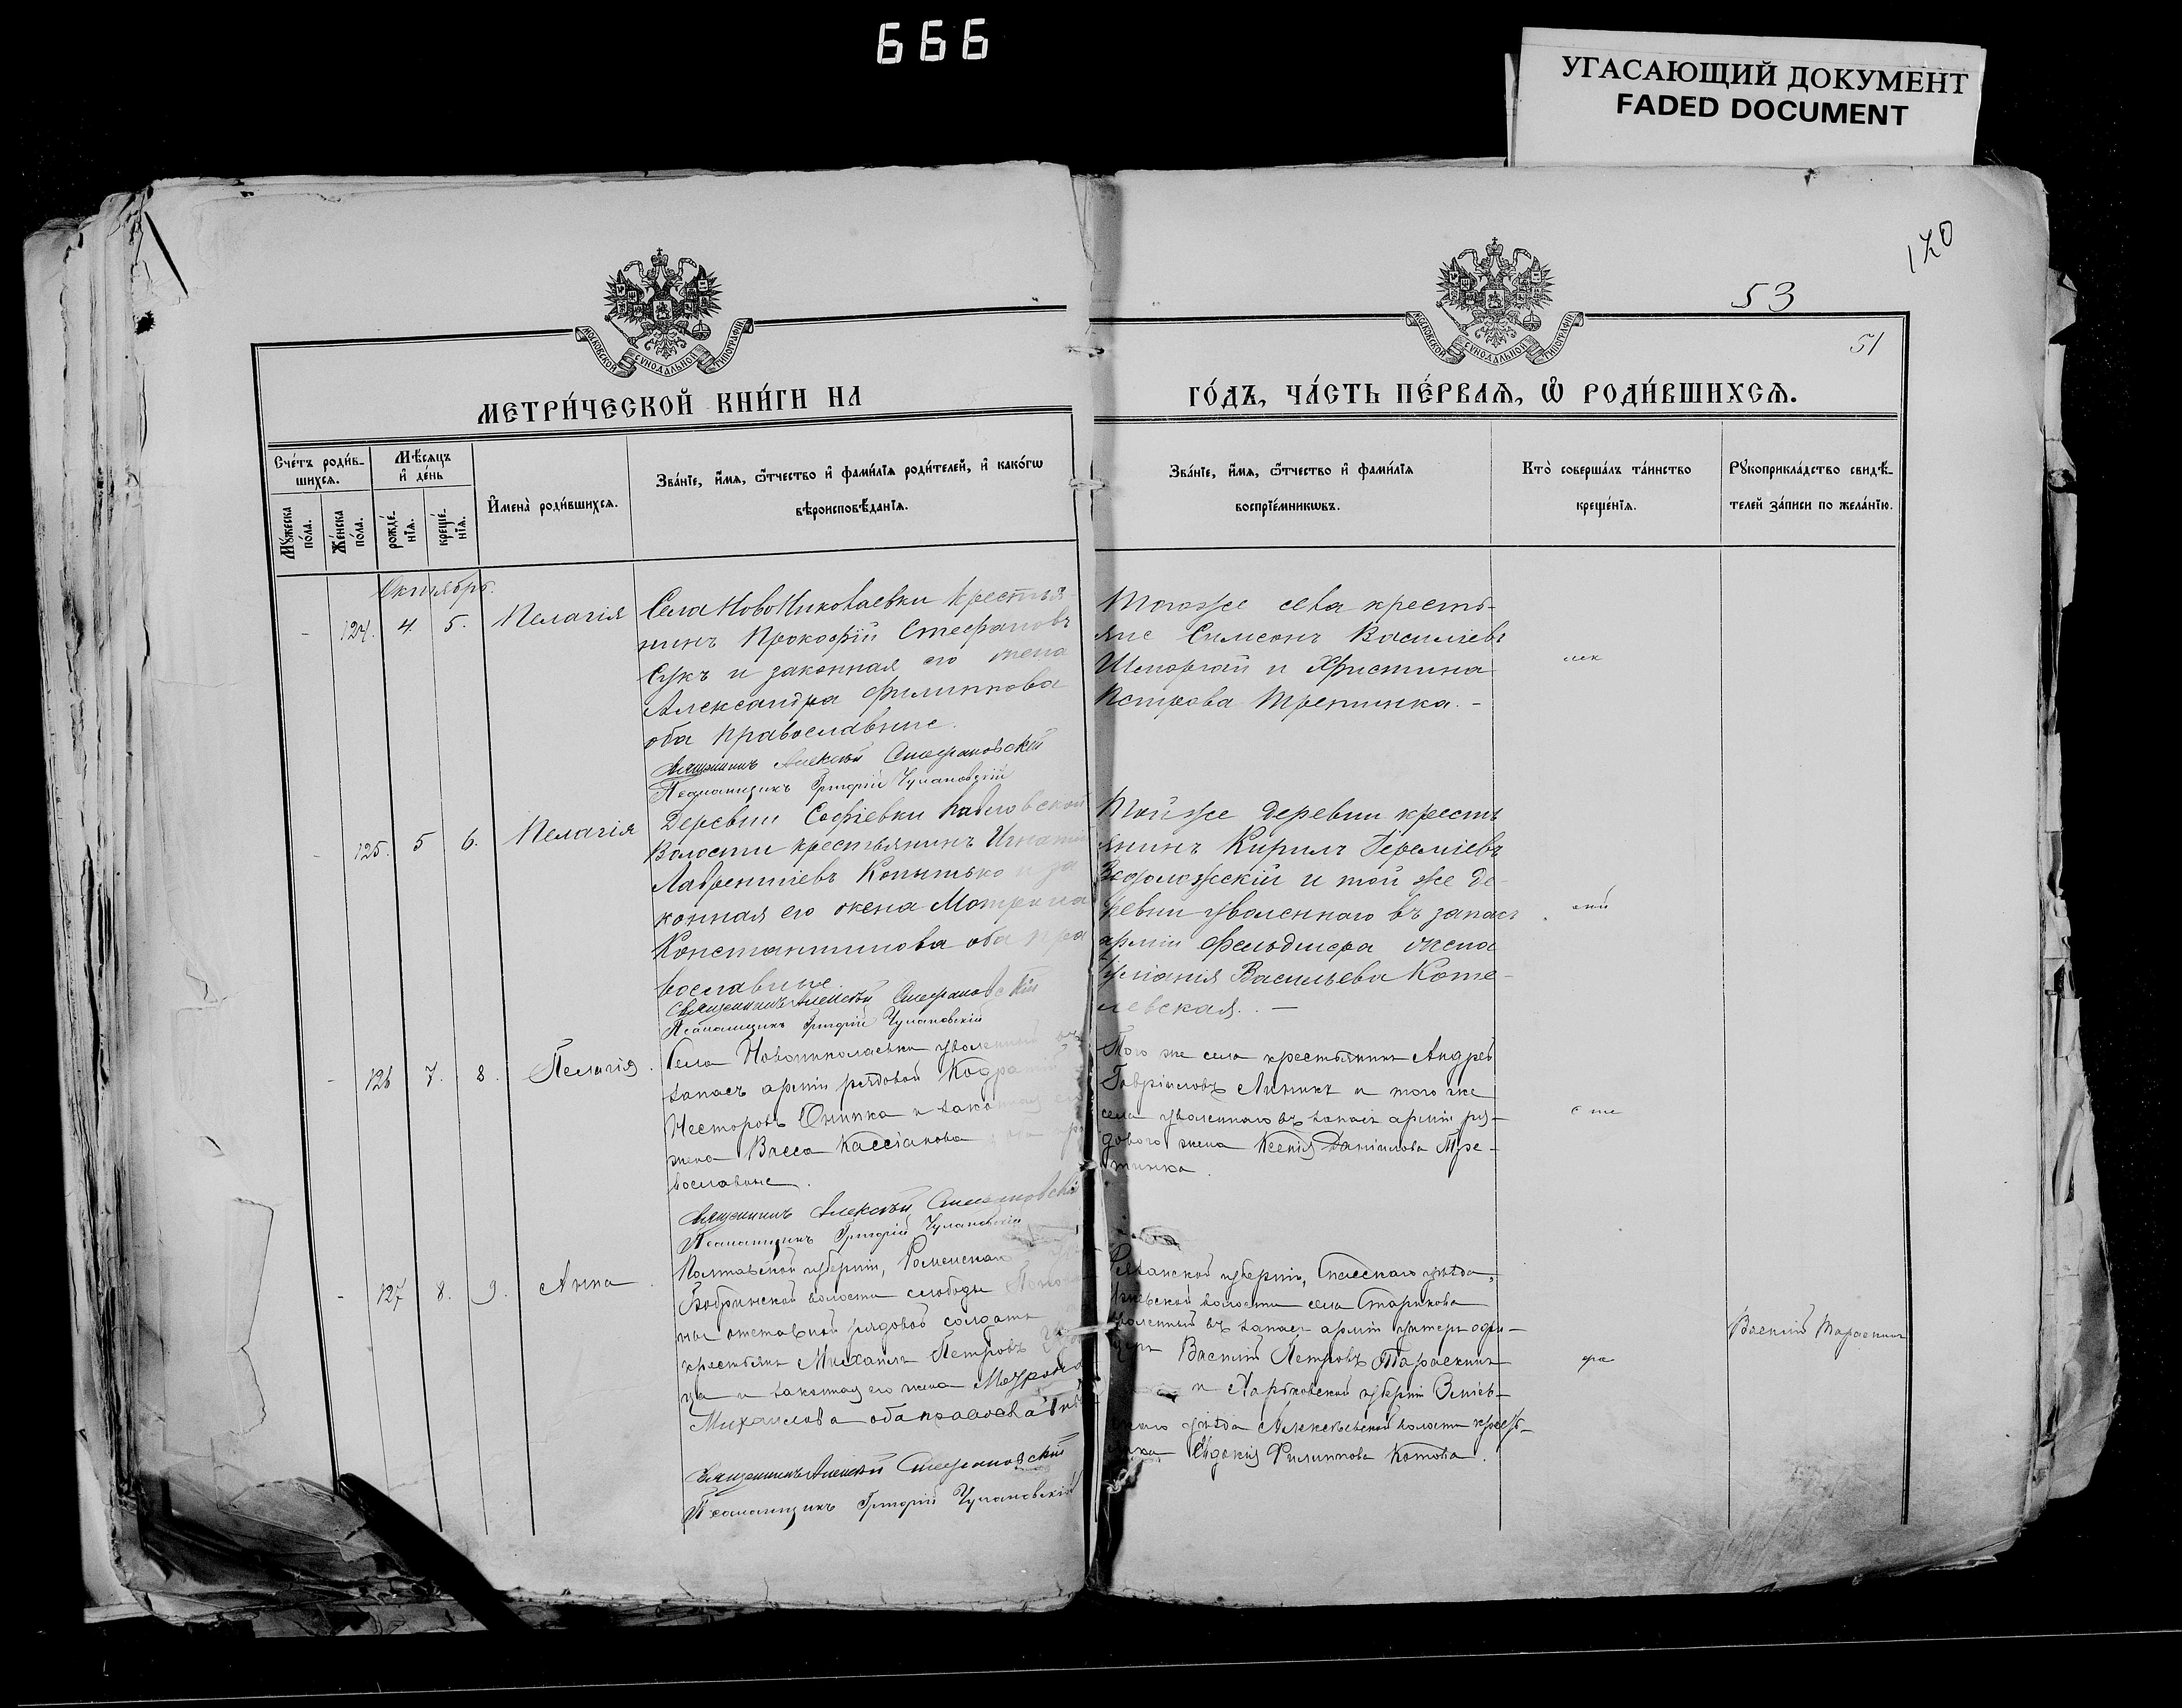 666
УГАСАЮЩИЙ ДОКУМЕНТ
FADED DOCUMENT
120
53
51
МОСКОВСКОЙ СѴНОДАЛЬНОЙ ТИПОГРАФІИ
МОСКОВСКОЙ СѴНОДАЛЬНОЙ ТИПОГРАФІИ
МЕТРИ́ЧЕСКОЙ КНИ́ГИ НА
ГО́ДЪ, ЧА́СТЬ ПЕ́РВАѦ, Ѡ҆ РОДИ́ВШИХСѦ.
Сче́тъ роди́в-
шихсѧ.
Мꙋ́жеска по́ла.
Же́нска по́ла.
Мѣ́сѧцъ
и҆ де́нь
рожде́-
нїѧ.
креще́-
нїѧ.
И҆мена̀ роди́вшихсѧ.
Зва́нїе, и҆́мѧ, ѻ҆́тчество и҆ фами́лїѧ роди́телей, и҆ како́гѡ
вѣроисповѣ́данїѧ.
Зва́нїе, и҆́мѧ, ѻ҆́тчество и҆ фами́лїѧ
воспрїе́мникѡвъ.
Кто̀ соверша́лъ та́инство
креще́нїѧ.
Рꙋкоприкла́дство свидѣ́-
телей за́писи по жела́нїю.
Октябрь.
- 124. 4. 5. Пелагія
Села НовоНиколаевки крестья-
нинъ Прокофій Стефановъ
Сукъ и законная его жена
Александра Филиппова
оба православные.
Священникъ Алексѣй Стефановскій
Псаломщикъ Григорій Чулановскій
Тогоже села кресть-
яне Симеонъ Василіевъ
и Христина
Петрова
- 125. 5 6. Пелагія
Деревни Софіевки Павловской
Волости крестьянинъ Игнатій
Лаврентіевъ Копытько и за
конная его жена Матрона
Константинова оба пра
вославные.
Священникъ Алексѣй Стефановскій
Псаломщикъ Григорій Чулановскій
Тойже деревни кресть
янинъ Кирилъ
и той же де-
ревни уволеннаго въ запасъ
арміи фельдшера жена
Васильева Коте-
левская. -
- 126 7. 8. Пелагія.
Села Новониколаевки уволенный въ
запасъ арміи рядовой
Несторовъ Онипка и законная его
жена Васса Кассіанова
вославные.
Священникъ Алексѣй Стефановскій
Псаломщикъ Григорій Чулановскій
Того же села крестьянинъ Андрей
Гавріиловъ и того же
села уволеннаго въ запасъ арміи ря-
дового жена Ксенія Даніилова
- 127 8. 9. Анна
Полтавской губерніи, Роменскаго
волости слободы
отставной рядовой
крестьянъ Михаилъ Петровъ
и законная его жена Матрона
Михаилова оба православные
Священникъ Алексѣй Стефановскій
Псаломщикъ Григорій Чулановскій
Рязанской губерніи, Спасскаго уѣзда,
волости села Старикова
уволенный въ запасъ арміи унтеръ офи-
церъ Василій Петровъ Тараскинъ
и Харьковской губерніи Зміев-
скаго уѣзда Алексѣевской волости кресть-
янка Евдокія Филиппова Котова.
Василій Тараскинъ